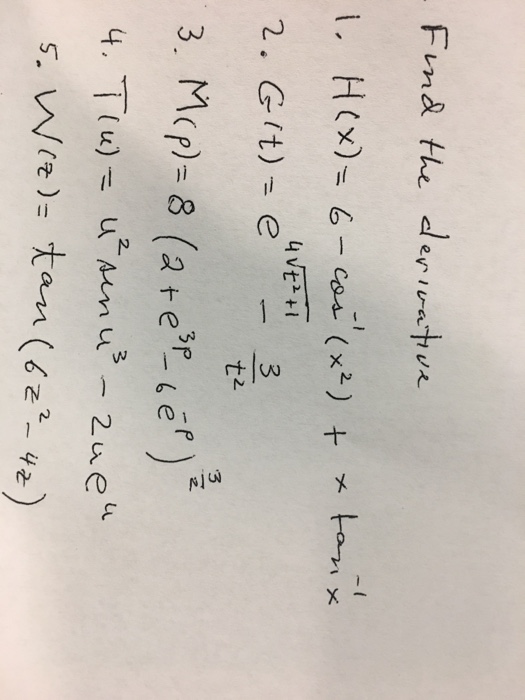 Find the derivative
1. H(x) = 6 - cos⁻¹(x²) + x tan⁻¹x
2. G(t) = e^(4√(t²+1)) - 3/t²
3. M(p) = 8(2 + e^(3p) - 6e^(-p))^(3/2)
4. T(u) = u² sin u³ - 2ue^u
5. W(z) = tan(6z² - 4z)